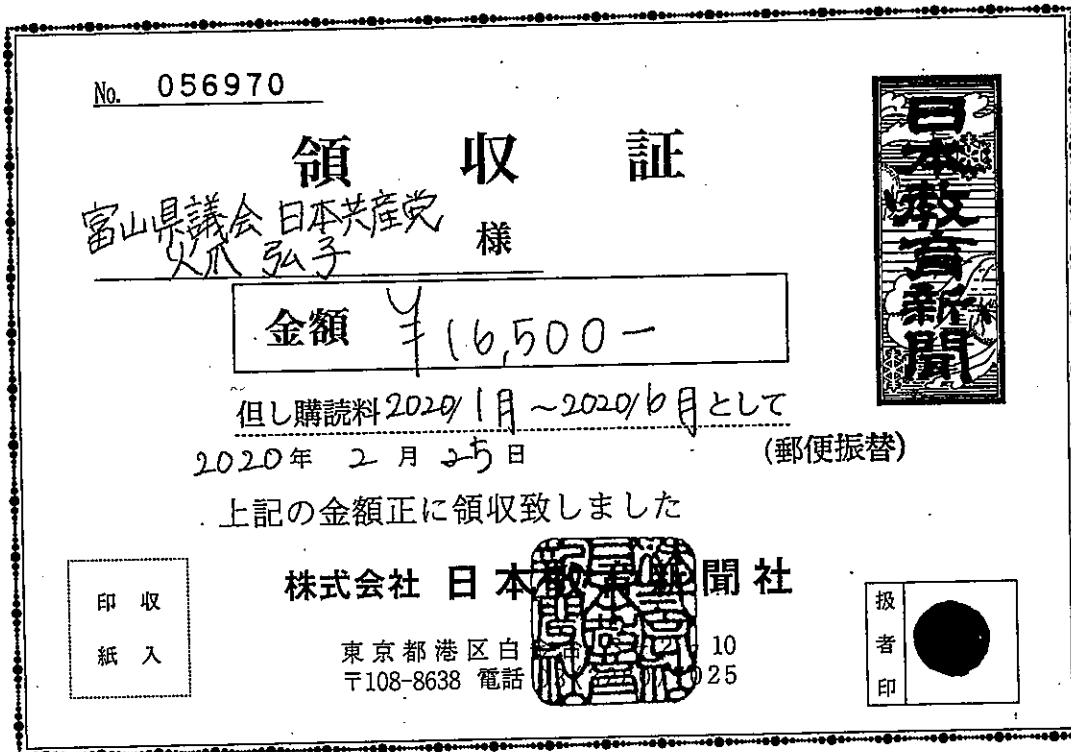 No. 056970
領収証
富山県議会 日本共産党
火爪 弘子 様
金額 ¥16,500−
但し購読料2020/1月～2020/6月として
2020年 2月 25日
(郵便振替)
上記の金額正に領収致しました
株式会社 日本教育新聞社
東京都港区白金台 10
〒108-8638 電話 025
日本教育新聞
収入
印紙
扱者印